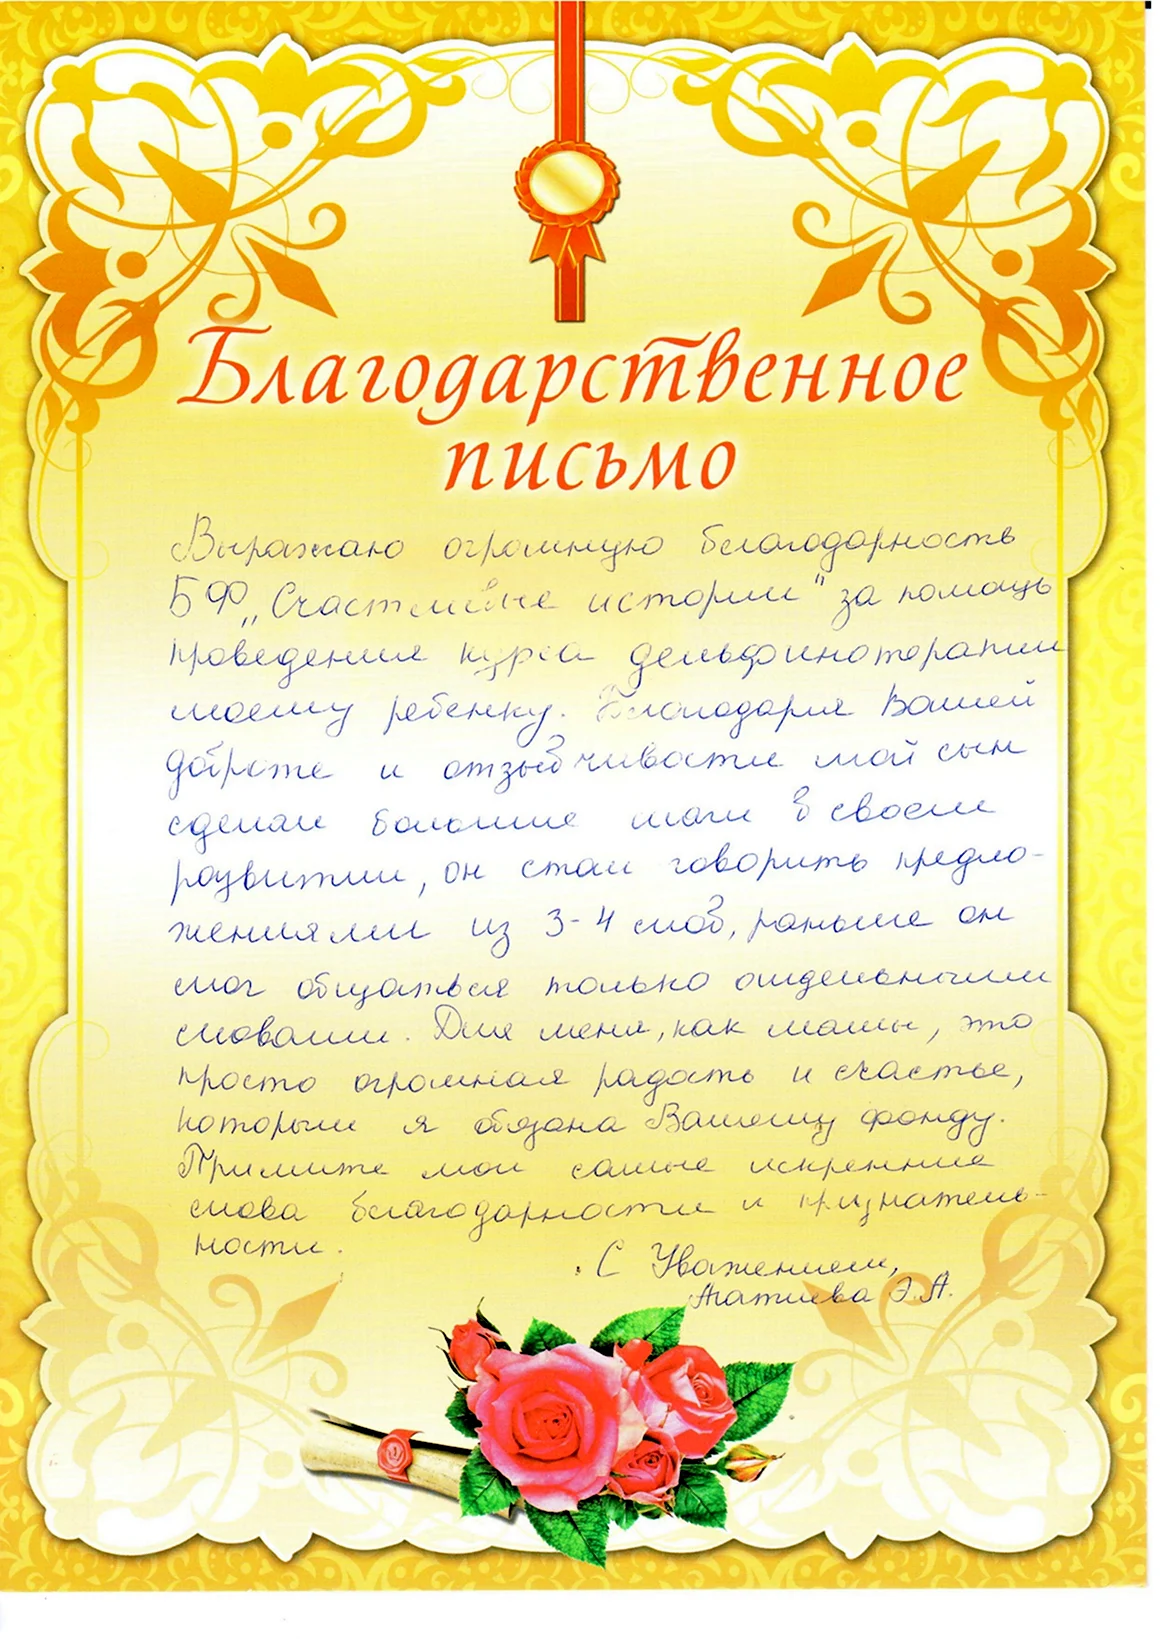 Благодарственное
письмо
Выражаю огромную благодарность
БФ „Счастливые истории" за помощь
проведения курса дельфинотерапии
моему ребенку. Благодаря Вашей
доброте и отзывчивости мой сын
сделал большие шаги в своем
развитии, он стал говорить предло-
жениями из 3-4 слов, раньше он
мог общаться только отдельными
словами. Для меня, как мамы, это
просто огромная радость и счастье,
которым я обязана Вашему фонду.
Примите мои самые искренние
слова благодарности и признатель-
ности.
С Уважением,
Э.А.